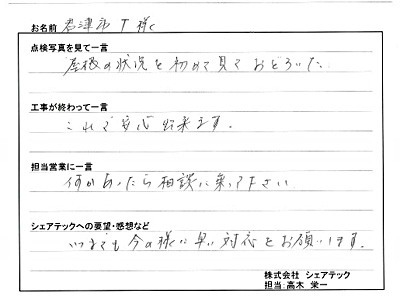 お名前 君津市 T 様
点検写真を見て一言
屋根の状況を初めて見ておどろいた
工事が終わって一言
これで安心出来ます。
担当営業に一言
何かあったら相談に乗って下さい
シェアテックへの要望・感想など
いつまでも今の様に早い対応をお願いします。
株式会社 シェアテック
担当:高木 栄一